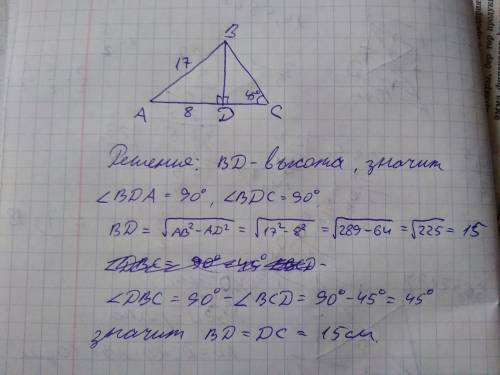 B
17
45°
A
8
D
C
Решение: BD - высота, значит
∠BDA = 90°, ∠BDC = 90°.
BD = √AB² - AD² = √17² - 8² = √289 - 64 = √225 = 15
∠DBC = 90° - ∠BCD = 90° - 45° = 45°
значит BD = DC = 15 см.